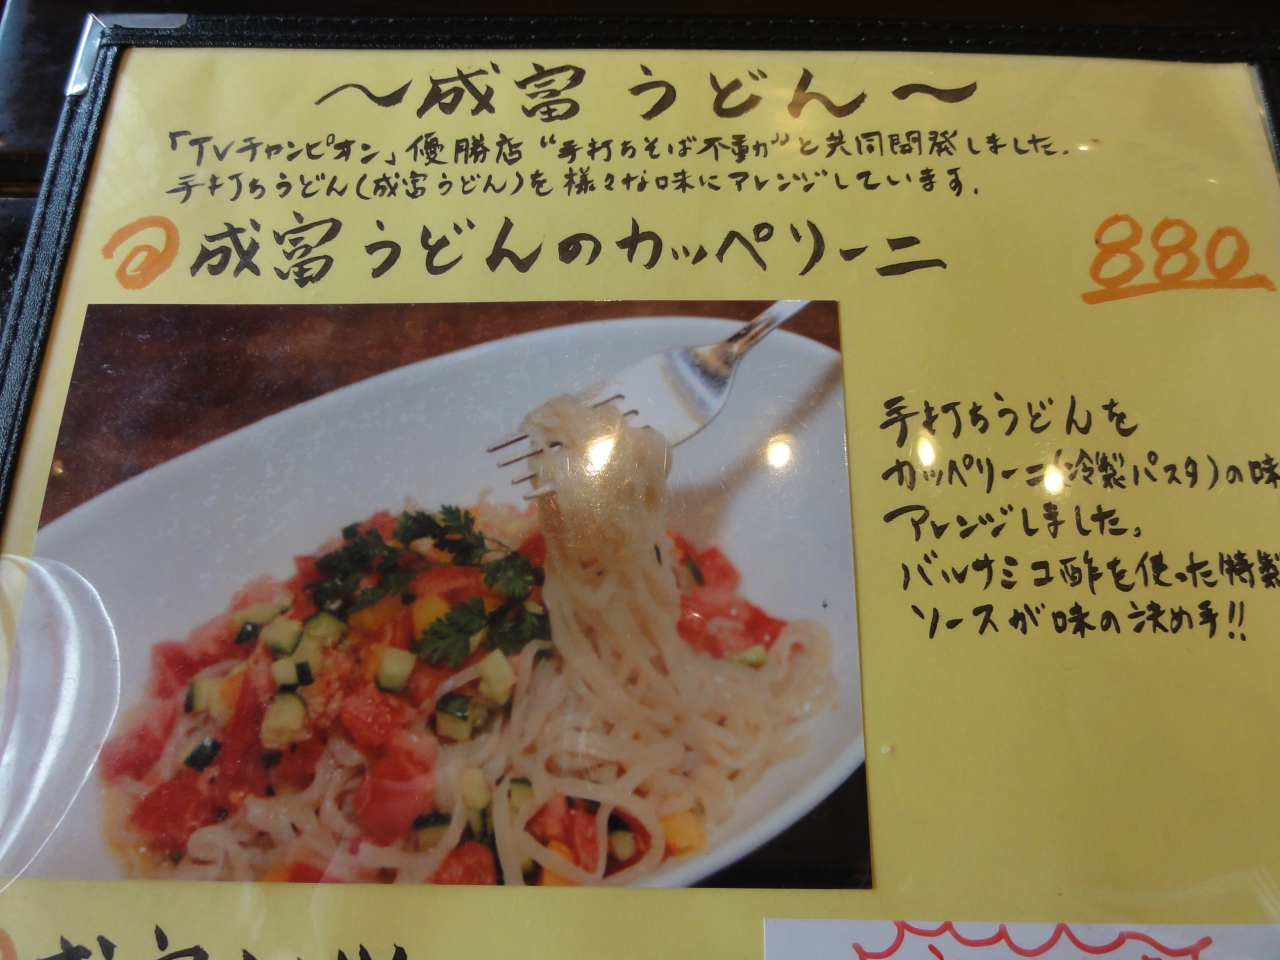 ～成富うどん～
「TVチャンピオン」優勝店“手打ちそば不動”と共同開発しました。
手打ちうどん(成富うどん)を様々な味にアレンジしています。
成富うどんのカッペリーニ 880
手打ちうどんを
カッペリーニ(冷製パスタ)の味
アレンジしました。
バルサミコ酢を使った特製
ソースが味の決め手!!